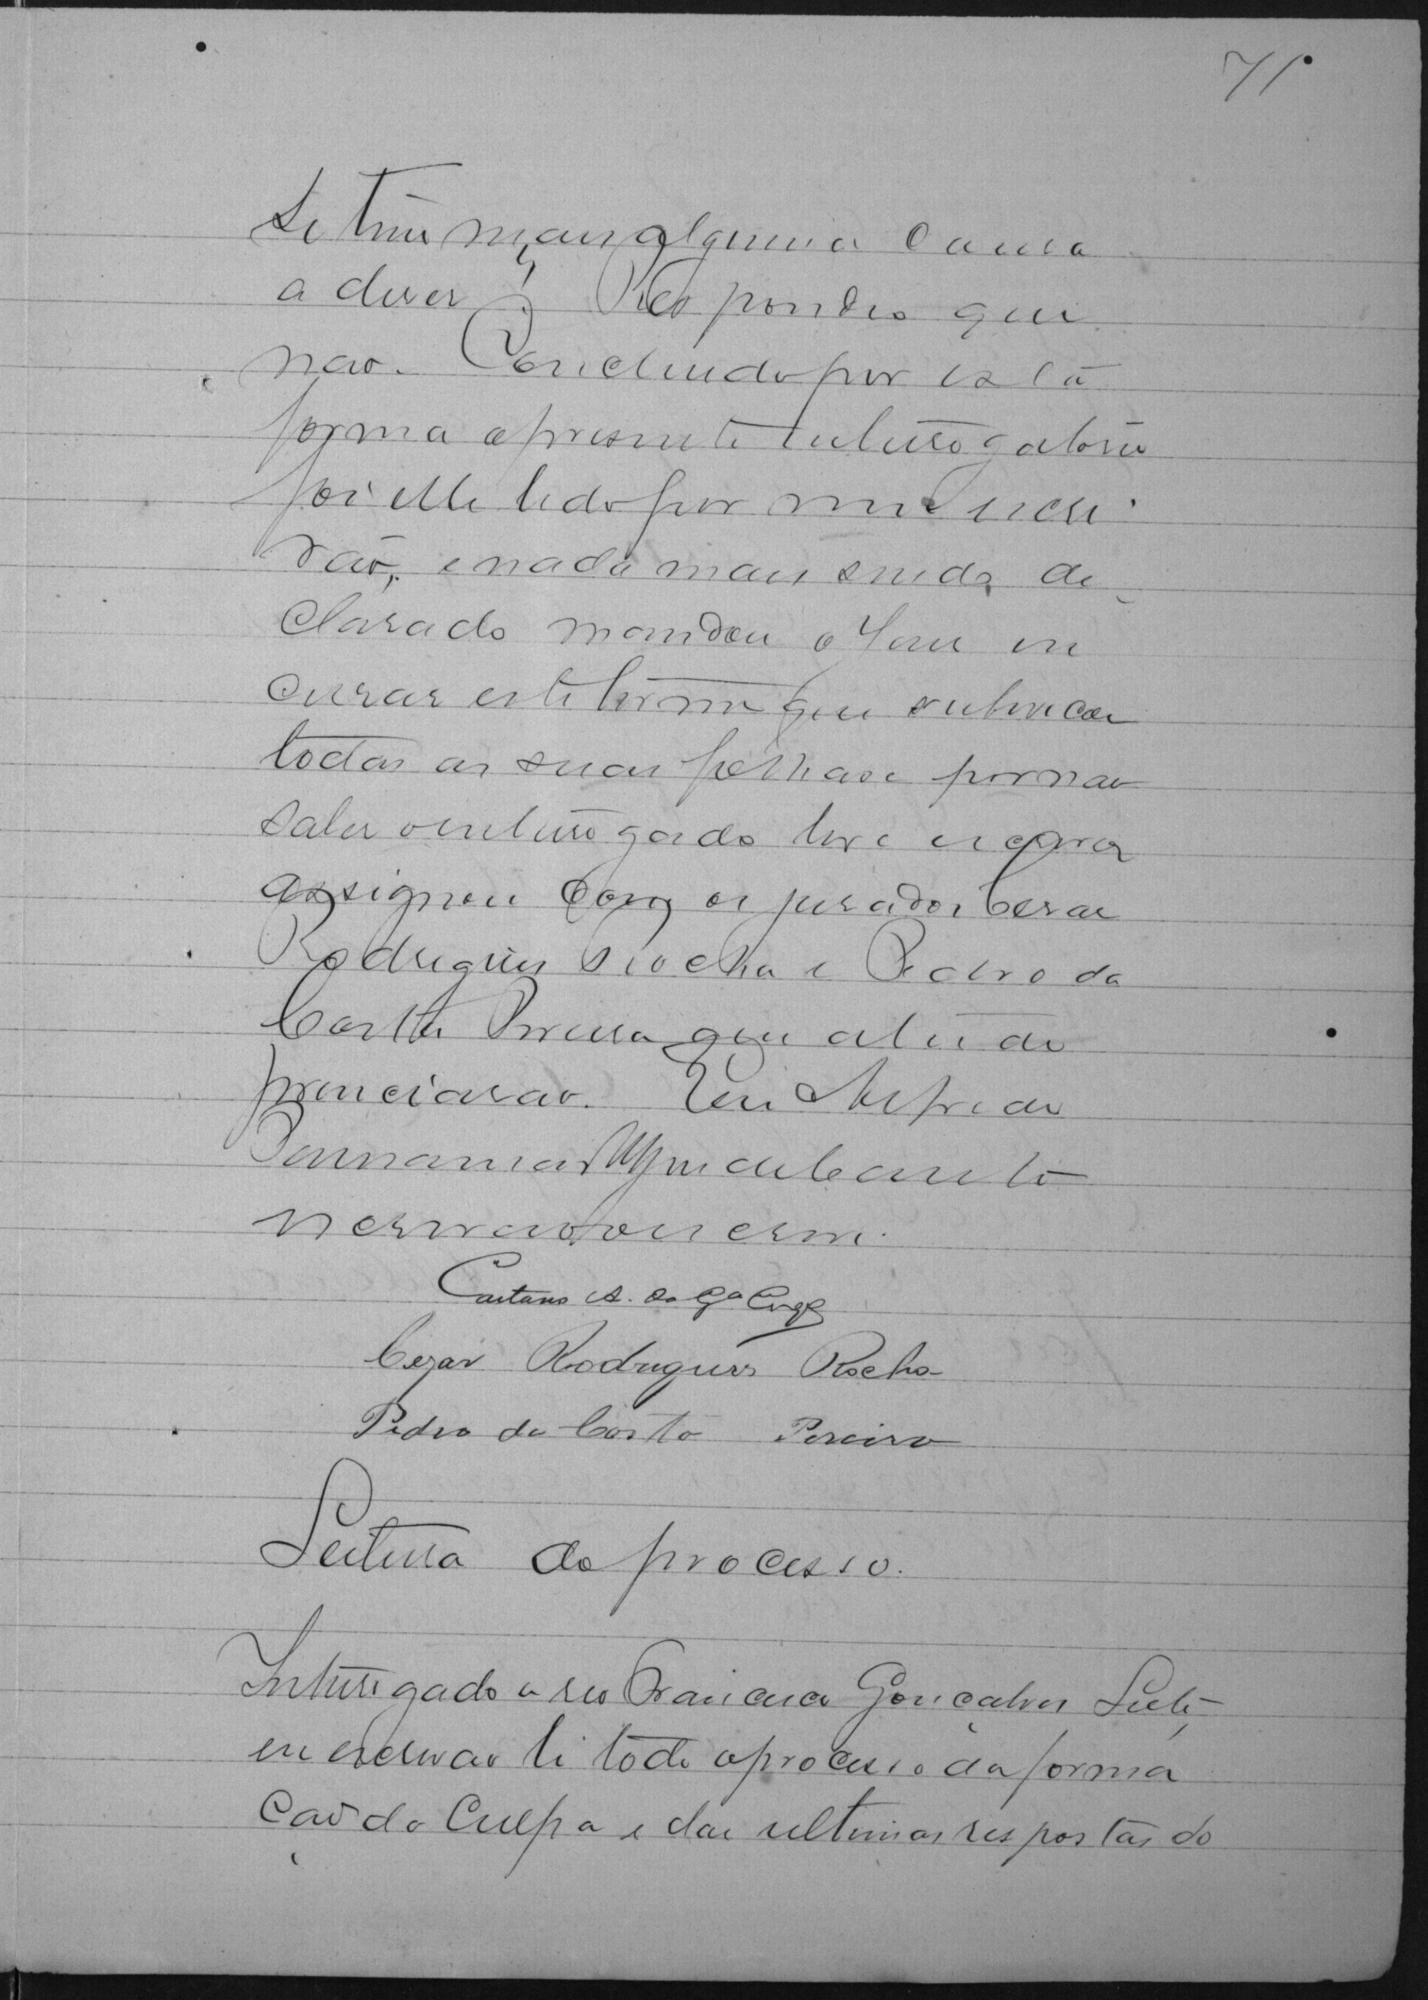 71
Se tem mais alguma causa
a diser? Respondeo que
não. Concluido por esta
forma o presente interrogatorio
foi elle lido por mim escri
vão, e nada mais sendo de
clarado mandou o Juiz en
cerrar este termo que rubricou
todas as suas folhas e por não
saber o interrogado ler e escrever
assignou com os jurados Cesar
Rodrigues Rocha e Pedro da
Costa Pereira que a tudo
prenciarão. Eu Alfredo
escrivão o escrevi.
Caetano A. da Ga
Cezar Rodrigues Rocha
Pedro da Costa Pereira
Leitura do processo.
Interrogado o reo Francisco Gonçalves Leite
eu escrivão li todo o processo da forma
ção da Culpa e das ultimas respostas do